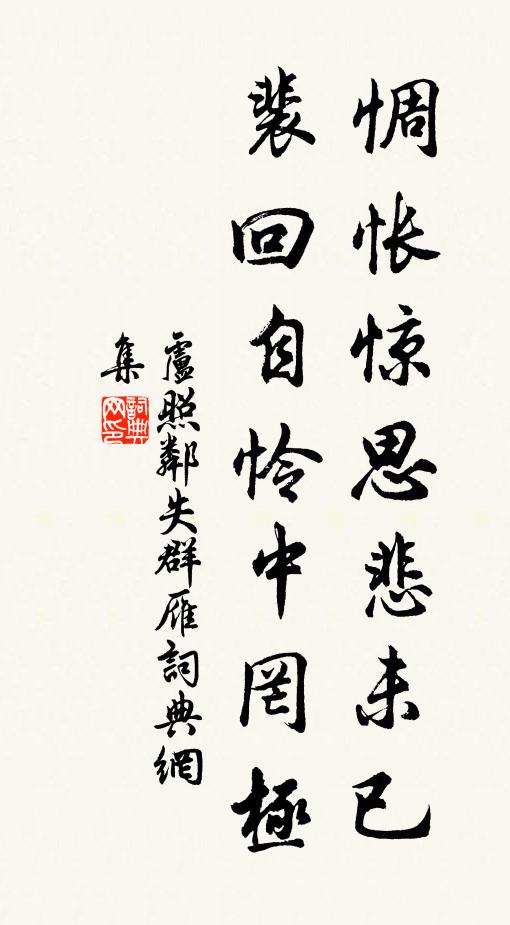 惆怅惊思悲未已
裴回自怜中罔極
盧照鄰失群雁詞典網
集
詞典网印